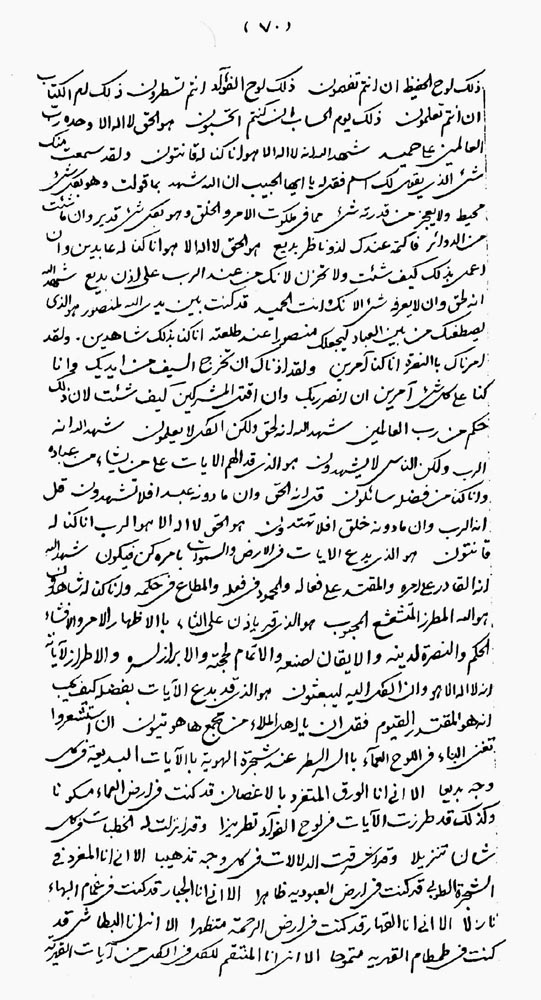 (٧٠)
ذلك لوح الحفيظ ان انتم تفهمون ذلك لوح الفؤاد انتم تسطرون ذلك لم الكتاب
ان انتم تعلمون ذلك يوم الحساب ان كنتم تحسبون هو الحق لا اله الا وحده رب
العالمين على حميد شهد الله انه لا اله الا هو وانا كنا له قانتون ولقد سمعت منك
شئ الذى يقول لك اسم فقد له يا ايها الحبيب ان الله شهد بما قولت وهو بكل شئ
محيط ولا يعجز من قدرته شئ مما فى ملكوت الامر والخلق وهو بكل شئ قدير وان ما شئت
من الدوائر فاكتمه عندك لذو ناظر بديع هو الحق لا اله الا هو وانا كنا له عابدين وان
اعمل بذلك كيف شئت ولا تحزن لانك من عند الرب على اذن بديع شهد الله
انه لحق وان لا يعرف شئ الا انك وانت الحميد قد كنت بين يدى الله لمنصور هو الذى
يصطفيك من بين العباد ليجعلك منصورا عند طلعته انا كنا بذلك شاهدين. ولقد
امرناك بالنصرة انا كنا آمرين ولقد اذناك ان تخرج السيف من ايديك وانا
كنا على كل شئ آمرين ان انصر بك وان اقتل المشركين كيف شئت لان ذلك
حكم من رب العالمين شهد الله انه لحق ولكن الكل لا يعلمون شهد الله انه
الرب ولكن الناس لا يشهدون هو الذى قد الهم الايات على من يشاء من عباده
وانا كنا من فضله سائلون قل انه الحق وان ما دونه عبد افلا تشهدون قل
انه الرب وان ما دونه خلق افلا تهتدون هو الحق لا اله الا هو الرب انا كنا له
قانتون هو الذى يبدع الايات فى الارض والسموات بامره كن فيكون شهد الله
انه القادر على امره والمقتدر على فعاله والمحمود فى فعله والمطاع فى حكمه وانا كنا له شاهدون
هو الله المطرز المتشعشع المحبوب هو الذى قد ياذن على النار بالاظهار لامره والافشاء
لحكم والنصرة لدينه والايقان لصنعه والاتمام لحجته والابراز لسره والاطراز لآياته
انه لا اله الا هو وان الكل اليه ليبعثون هو الذى قد يبدع الآيات بفضله كيف يحب
انه هو المقتدر القيوم فقد ان يا اهل الملاء من تجمع ها هو تيون ان استشعروا
تغنى البناء فى اللوح العماء بالسر السطر عند شجرة الهوية بالآيات البديعة فى كل
وجه بديعا الا انى انا الورق المتغرد بالاغصان قد كنت فى ارض العماء مسكونا
وكذلك قد طرزت الآيات فى لوح الفؤاد تطريزا وقد انزلت له الخطبات فى كل
شان تنزيلا وقد اشرقت الدلالات فى كل وجه تذهيب الا انى انا المغرد فى
الشجرة الطوبى قد كنت فى ارض العبودية ظاهرا الا انى انا الجبار قد كنت فى غمام البهاء
نازلا الا انى انا القهار قد كنت فى ارض الرحمة منتظرا الا انى انا البطاش قد
كنت فى طمطام القهرية متموجا الا انى انا المنتقم للكل فى الكل من آيات القهرية